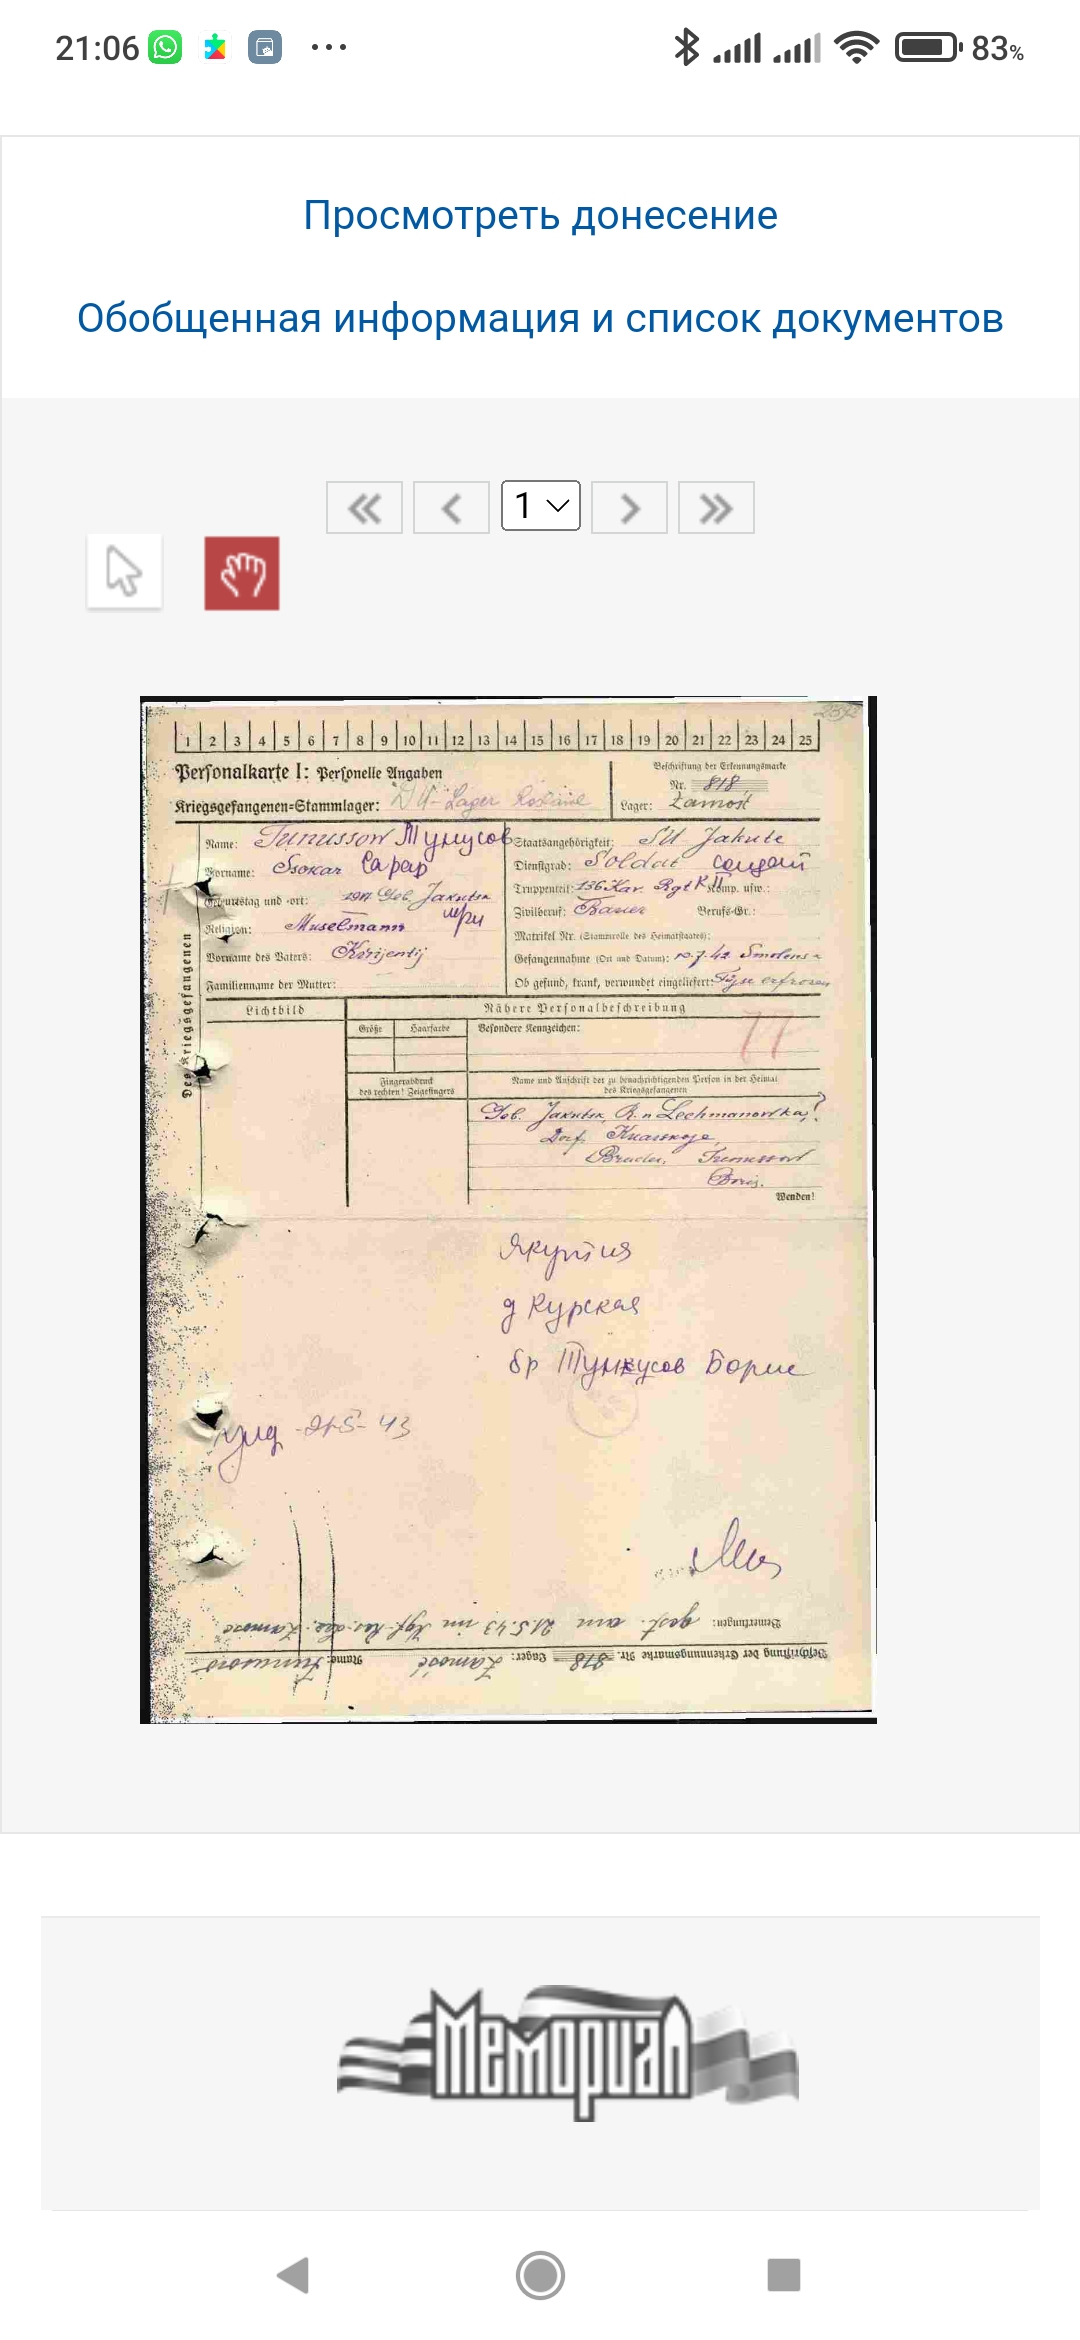 21:06
83%
Просмотреть донесение
Обобщенная информация и список документов
1
1 2 3 4 5 6 7 8 9 10 11 12 13 14 15 16 17 18 19 20 21 22 23 24 25
Personalkarte I: Personelle Angaben
Beschriftung der Erkennungsmarke
Nr. 818
Kriegsgefangenen=Stammlager:
Lager: Zamość
Des Kriegsgefangenen
Name: Tunussow Тунусов
Vorname: Сарар
Geburtstag und -ort: Geb. Jakutsk
Religion: Muselmann
Vorname des Vaters:
Familienname der Mutter:
Staatsangehörigkeit: SU Jakute
Dienstgrad: Soldat солдат
Truppenteil: 136 Kav. Rgt Komp. usw.:
Zivilberuf: Bauer Berufs-Gr.:
Matrikel Nr. (Stammrolle des Heimatstaates):
Gefangennahme (Ort und Datum): 10.7.42 Smolensk
Ob gesund, krank, verwundet eingeliefert: Füße erfroren
Lichtbild
Nähere Personalbeschreibung
Größe Haarfarbe Besondere Kennzeichen:
77
Fingerabdruck
des rechten! Zeigefingers
Name und Anschrift der zu benachrichtigenden Person in der Heimat
des Kriegsgefangenen
Geb. Jakutsk, R.n Lechmanowka,?
Dorf
Bruder,
Boris.
Wenden!
Якутия
д Курская
бр Тунусов Борис
21-5-43
Bemerkungen: gest. am 21.5.43 im Zamosc
Beschriftung der Erkennungsmarke Nr. 818 Lager: Zamość Name: Tunussow
Мемориал